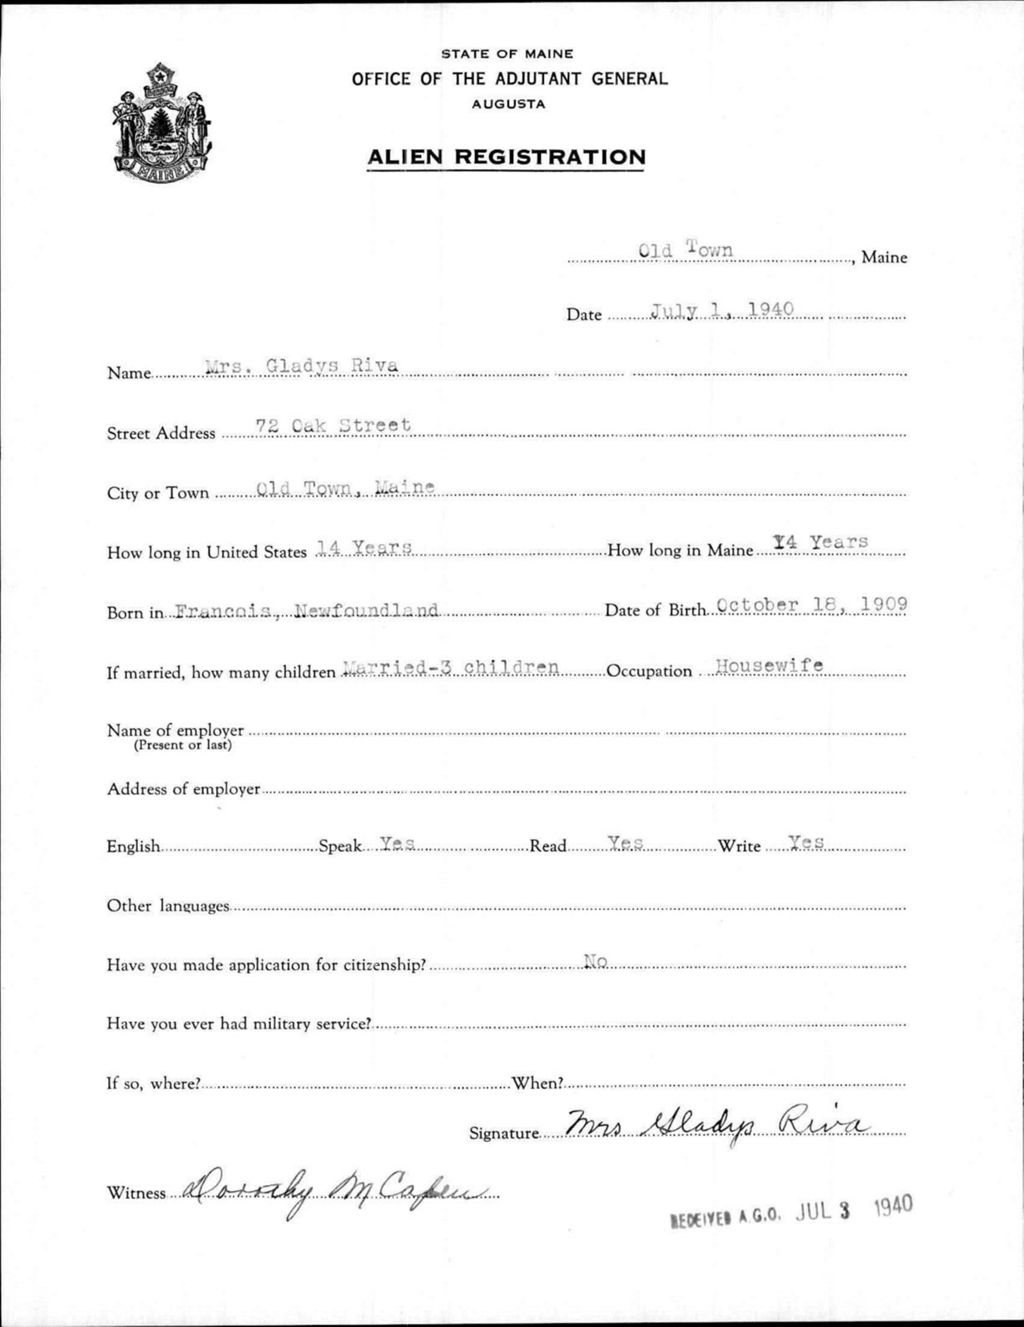 STATE OF MAINE
OFFICE OF THE ADJUTANT GENERAL
AUGUSTA
MAINE
ALIEN REGISTRATION
Old Town, Maine
Date July 1, 1940
Name Mrs. Gladys Riva
Street Address 72 Oak Street
City or Town Old Town, Maine
How long in United States 14 Years How long in Maine 14 Years
Born in Francois, Newfoundland Date of Birth October 18, 1909
If married, how many children Married-3 children Occupation Housewife
Name of employer
(Present or last)
Address of employer
English Speak Yes Read Yes Write Yes
Other languages
Have you made application for citizenship? No
Have you ever had military service?
If so, where? When?
Signature Mrs Gladys Riva
Witness Dorothy M Capen
RECEIVED A.G.O. JUL 3 1940